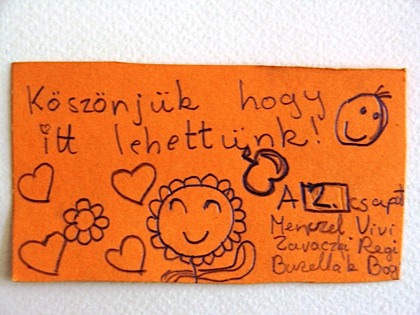 Köszönjük hogy
itt lehettünk!
A 2. csapat
Menczel Vivi
Zavaczki Regi
Buzellák Bogi